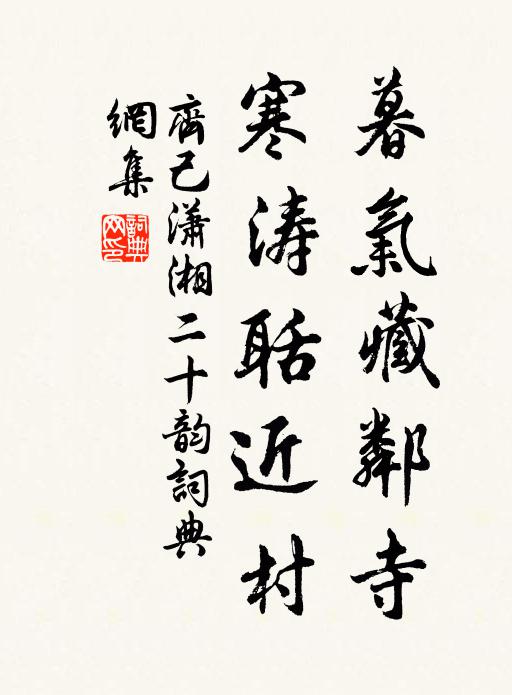 暮氣藏鄰寺
寒涛聒近村
齊己瀟湘二十韵詞典
網集
詞典網印